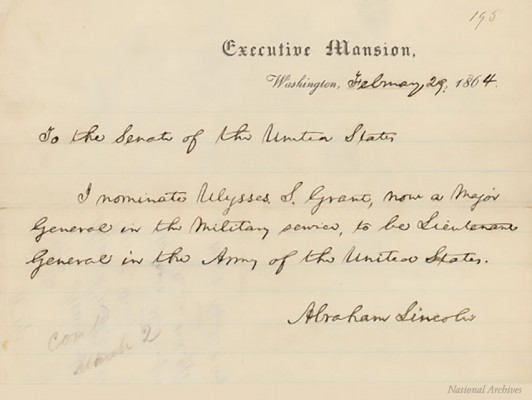 195
Executive Mansion,
Washington, February 29, 1864.
To the Senate of the United States
I nominate Ulysses S. Grant, now a Major
General in the Military service, to be Lieutenant
General in the Army of the United States.
Abraham Lincoln
March 2
National Archives